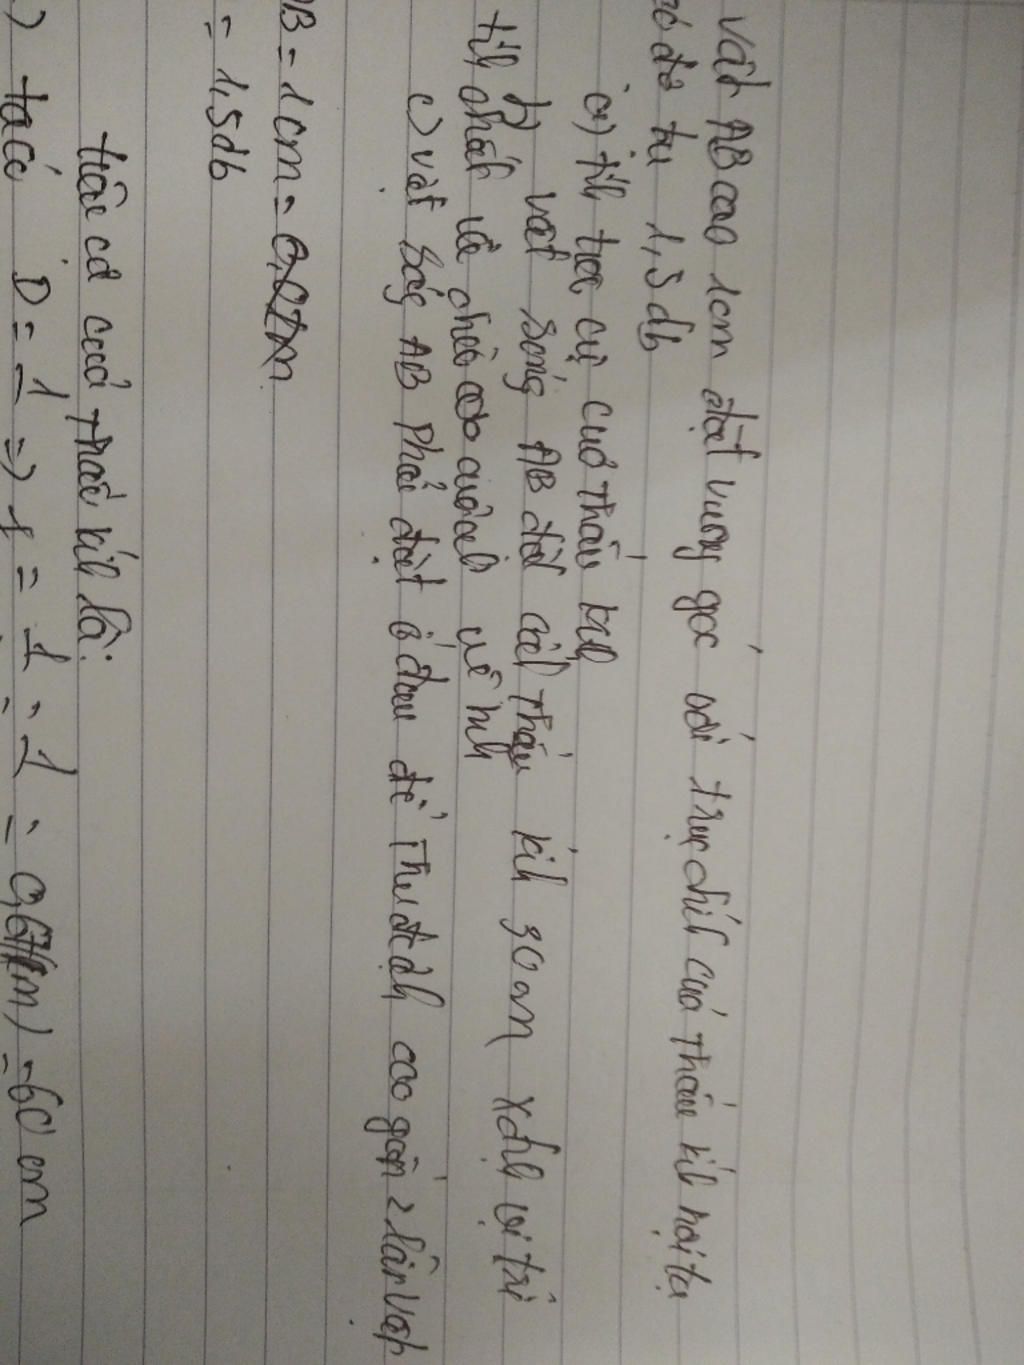 vật AB cao 1cm đặt vuông góc với trục chính của thấu kính hội tụ
có độ tụ 1,5db
a) tính tiêu cự của thấu kính
b) vật sáng AB đặt cách thấu kính 30cm xđịnh vị trí
tính chất và chiều cao của ảnh vẽ hình
c) vật sáng AB phải đặt ở đâu để thu đc ảnh cao gấp 2 lần vật
AB = 1cm = 0,01m
= 1,5db
tiêu cự của thấu kính là:
) ta có D = 1 => f = 1 = 1 = 0,6 (m) = 60 cm